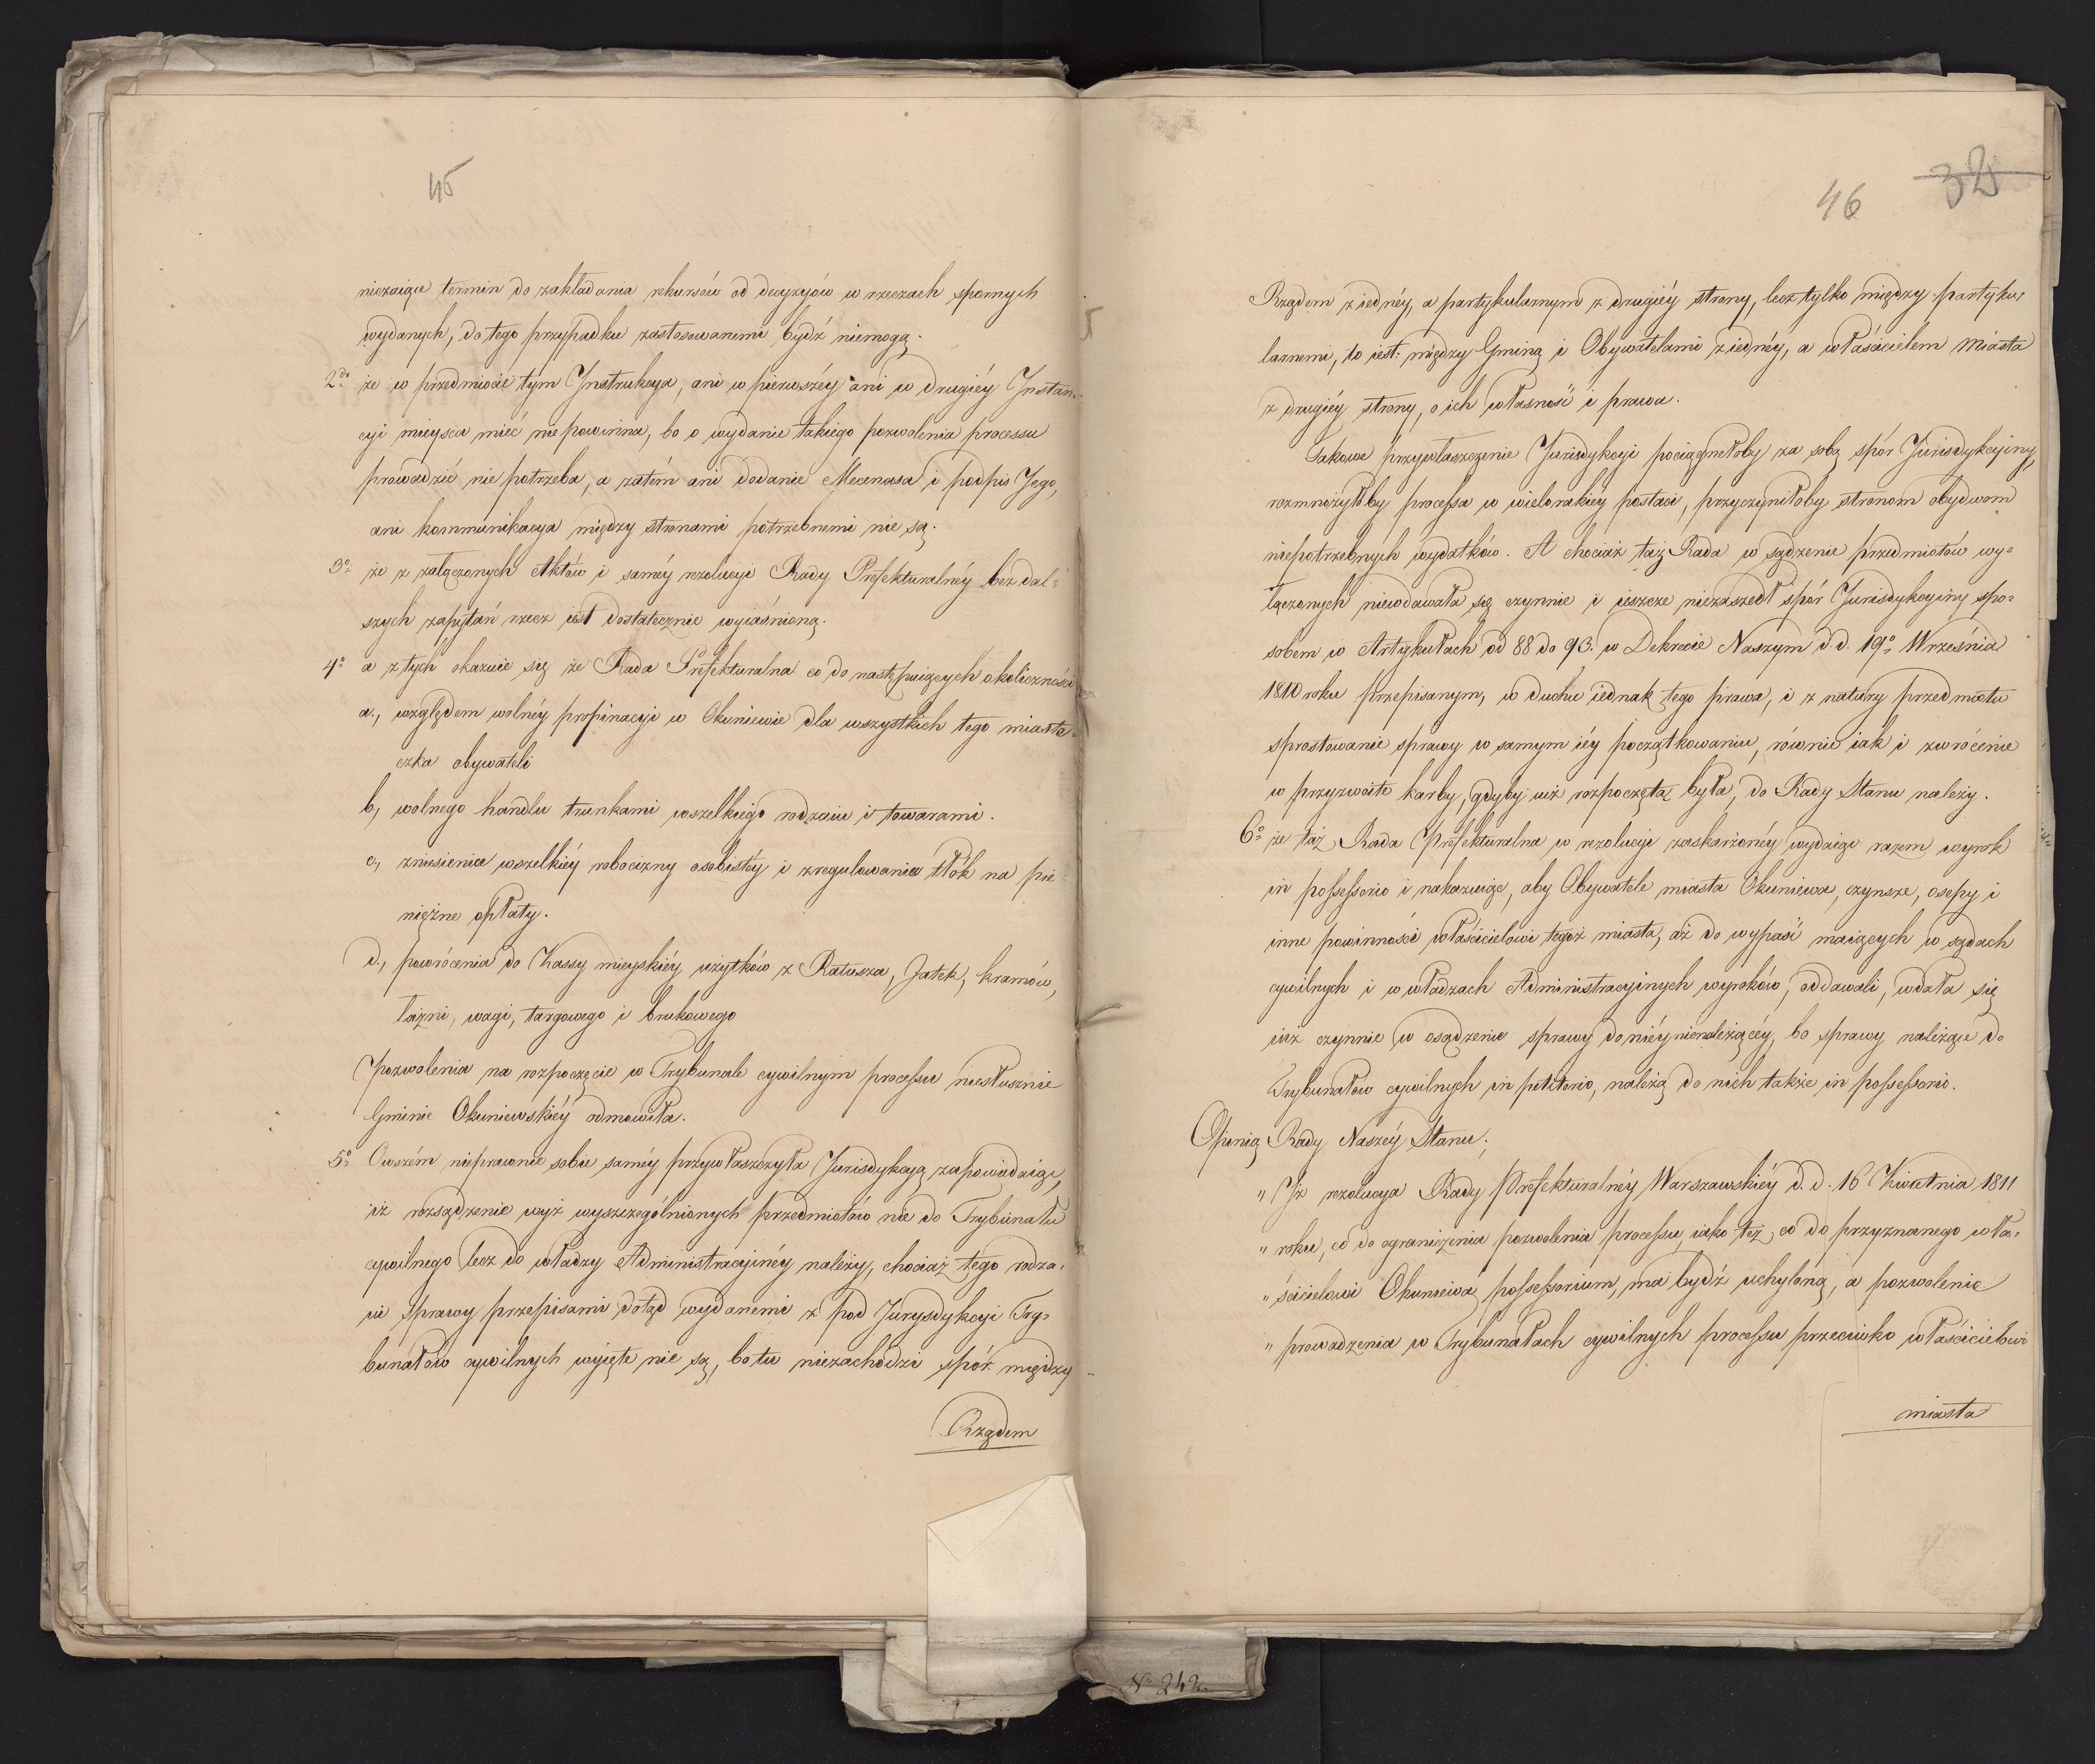 45
niezaiące termin do zakładania rekursów od decyzyiów w rzeczach spornych
wydanych, do tego przypadku zastosowanemi bydź niemogą.
2do że w przedmiocie tym Instrukcya, ani w pierwszéy ani w drugiéy Instan=
cyi mieysca mieć nie powinna, bo o wydanie takiego pozwolenia processu
prowadzić nie potrzeba, a zatém ani dodanie Mecenasa i podpis Jego,
ani kommunikacya między stronami potrzebnemi nie są.
3o że z załączonych Aktów i saméy rezolucyi Rady Prefekturalnéy bez dal=
szych zapytań rzecz iest dostatecznie wyiaśnioną.
4o a z tych okazuie się że Rada Prefekturalna co do następuiących okoliczności
a., względem wolnéy propinacyi w Okuniewie dla wszystkich tego miaste=
czka obywateli
b, wolnego handlu trunkami wszelkiego rodzaiu i towarami.
c, zniesienia wszelkiéy robocizny osobistéy i zregulowania tłók na pie=
niężne opłaty.
d., powrócenia do Kassy mieyskiéy użytków z Ratusza, Jatek, kramów,
łaźni, wagi, targowego i brukowego
Pozwolenia na rozpoczęcie w Trybunale cywilnym processu niesłusznie
Gminie Okuniewskiéy odmowiła.
5o Owszém nieprawnie sobie saméy przywłaszczyła Jurisdykcyą zapowiadaiąc,
iż rozsądzenie wyż wyszczególnionych przedmiotów nie do Trybunału
cywilnego lecz do władzy Administracyinéy należy, chociaż tego rodza=
iu sprawy przepisami dotąd wydanemi z pod Jurysdykcyi Try=
bunałów cywilnych wyięte nie są, bo tu niezachodzi spór między
Rządem
46
32
Rządem z iednéy, a partykularnym z drugiéy strony, lecz tylko między partyku=
larnemi, to iest: między Gminą i Obywatelami z iednéy, a właścicielem Miasta
z drugiéy strony, o ich własność i prawa.
Takowe przywłaszczenie Jurisdykcyi pociągnełoby za sobą spór Jurisdykcyiny,
rozmnożyłoby processa w wielorakiéy postaci, przyczyniłoby stronom obydwom
niepotrzebnych wydatków. A chociaż taż Rada w sądzenie przedmiotów wy=
łączonych niewdawała się czynnie i ieszcze niezaszedł spór Jurisdykcyiny spo=
sobem w Artykułach od 88 do 93. w Dekrecie Naszym d. d. 19o Września
1810 roku przepisanym, w duchu iednak tego prawa, i z natury przedmiotu
sprostowanie sprawy w samym iéy początkowaniu, równie iak i zwrócenie
w przyzwoite karby, gdyby iuż rozpoczętą była, do Rady Stanu należy.
6o że taż Rada Prefekturalna w rezolucyi zaskarżonéy wydaiąc razem wyrok
in possessorio i nakazuiąc, aby Obywatele miasta Okuniewa, czynsze, osepy i
inne powinności właścicielowi tegoż miasta, aż do wypaść maiących w sądach
cywilnych i w władzach Administracyinych wyroków, oddawali, wdała się
iuż czynnie w osądzenie sprawy do niéy nienależącéy, bo sprawy należące do
Trybunałów cywilnych in petitorio, należą do nich także in possessorio.
Opinią Rady Naszéy Stanu;
" Iż rezolucya Rady Prefekturalnéy Warszawskiéy d. d. 16 Kwietnia 1811
" roku, co do ograniczenia pozwolenia processu, iako też, co do przyznanego wła=
" ścicielowi Okuniewa possessorium, ma bydź uchyloną, a pozwolenie
" prowadzenia w Trybunałach cywilnych processu przeciwko właścicielowi
miasta
No 242.